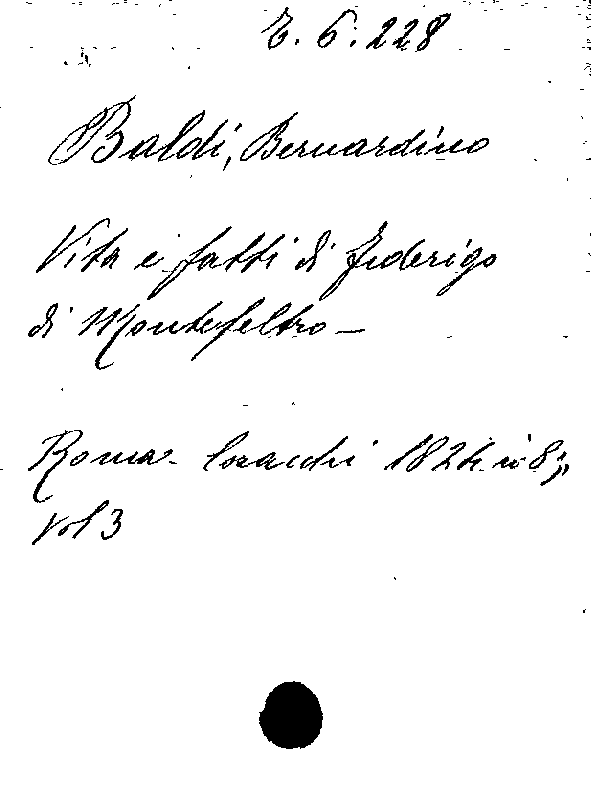 6.228
Baldi, Bernardino
Vita e fatti di Federigo
di Montefeltro —
Roma - 1824 in 8,,
Vol 3